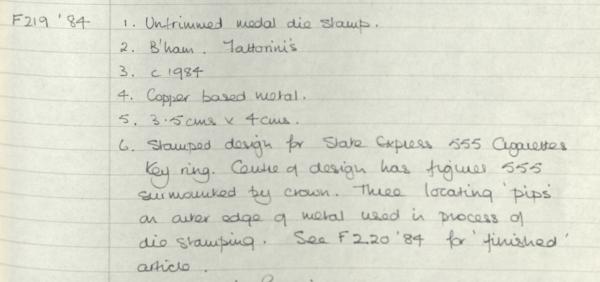 F219 '84 1. Untrimmed medal die stamp.
2. B'ham. Fattorini's
3. c 1984
4. Copper based metal.
5. 3.5cms x 4cms.
6. Stamped design for State Express 555 Cigarettes
Key ring. Centre of design has figures 555
surmounted by crown. Three locating 'pips'
on outer edge of metal used in process of
die stamping. See F2.20 '84 for 'finished'
article.